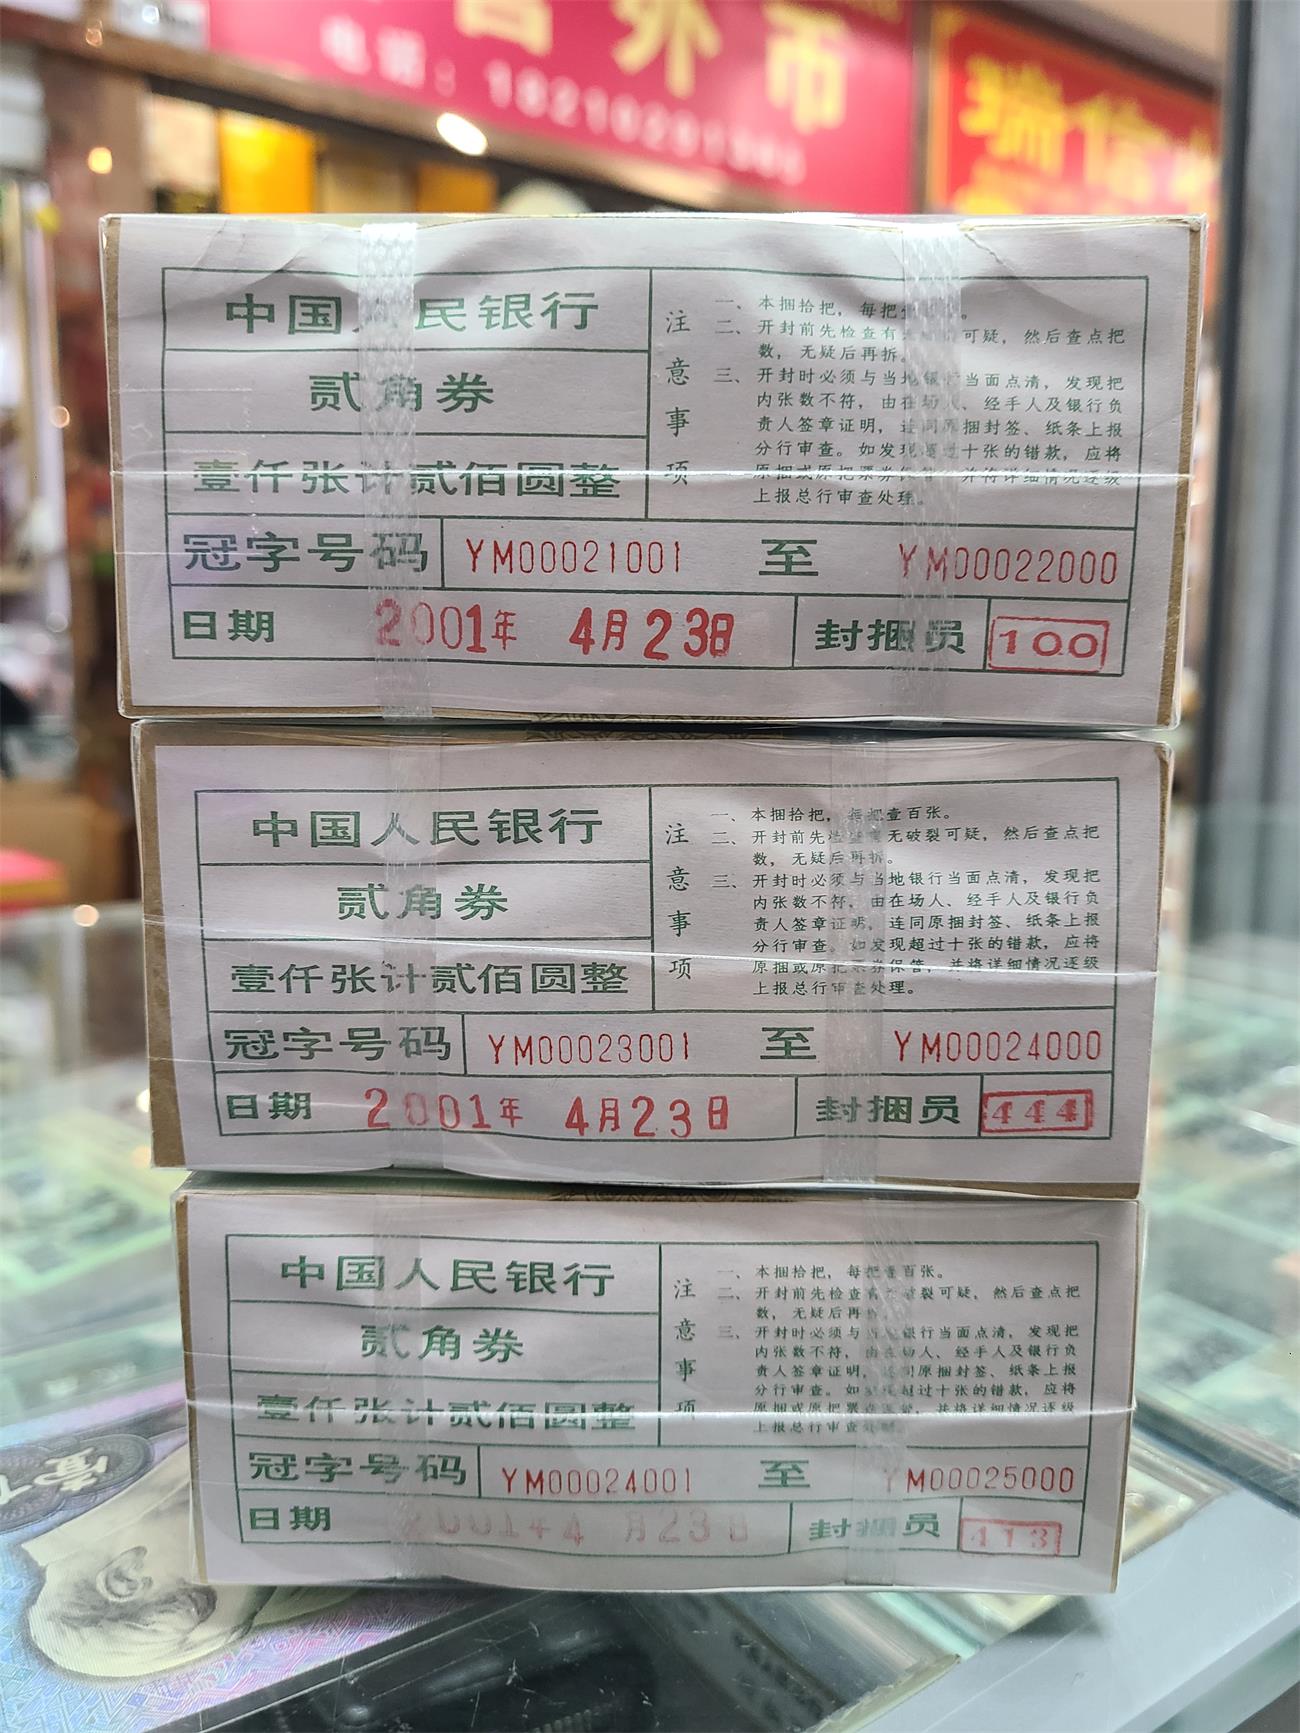 外币
电话：
瑞信
中国人民银行
贰角券
壹仟张计贰佰圆整
注意事项
一、本捆拾把，每把
二、开封前先检查有 可疑，然后查点把
数，无疑后再拆。
三、开封时必须与当地银行当面点清，发现把
内张数不符，由在场人、经手人及银行负
责人签章证明，连同原捆封签、纸条上报
分行审查。如发现超过十张的错款，应将
原捆或原把票券保管，并将详细情况逐级
上报总行审查处理。
冠字号码 YM00021001 至 YM00022000
日期 2001年 4月23日 封捆员 100
中国人民银行
贰角券
壹仟张计贰佰圆整
注意事项
一、本捆拾把，每把壹百张。
二、开封前先检查有无破裂可疑，然后查点把
数，无疑后再拆。
三、开封时必须与当地银行当面点清，发现把
内张数不符，由在场人、经手人及银行负
责人签章证明，连同原捆封签、纸条上报
分行审查。如发现超过十张的错款，应将
原捆或原把票券保管，并将详细情况逐级
上报总行审查处理。
冠字号码 YM00023001 至 YM00024000
日期 2001年 4月23日 封捆员 444
中国人民银行
贰角券
壹仟张计贰佰圆整
注意事项
一、本捆拾把，每把壹百张。
二、开封前先检查有无破裂可疑，然后查点把
数，无疑后再拆。
三、开封时必须与当地银行当面点清，发现把
内张数不符，由在场人、经手人及银行负
责人签章证明，连同原捆封签、纸条上报
分行审查。如发现超过十张的错款，应将
原捆或原把票券保管，并将详细情况逐级
上报总行审查处理。
冠字号码 YM00024001 至 YM00025000
日期 2001年4月23日 封捆员 413
壹